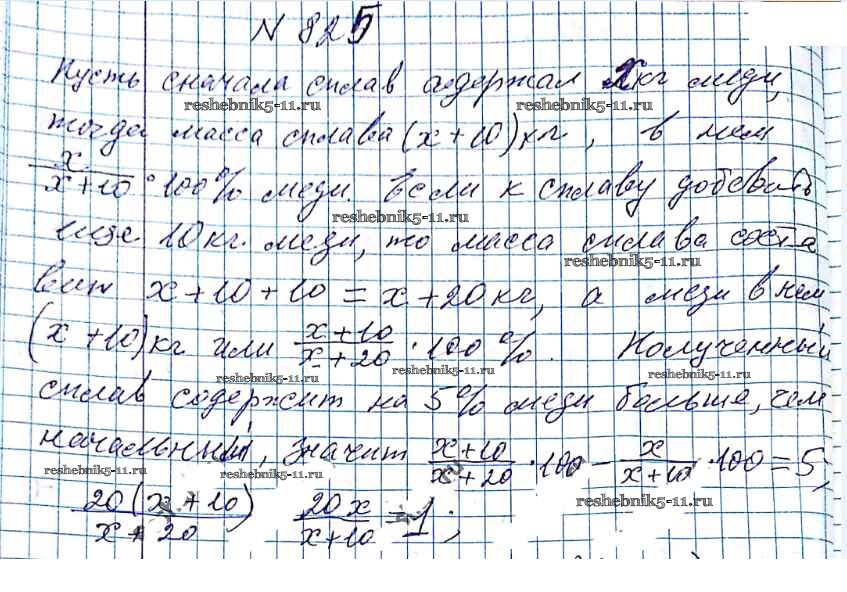 N 825
Пусть сначала сплав содержал x кг меди,
reshebnik5-11.ru reshebnik5-11.ru
тогда масса сплава (x+10) кг, в нем
x/(x+10) · 100% меди. Если к сплаву добавить
reshebnik5-11.ru
еще 10 кг. меди, то масса сплава соста
reshebnik5-11.ru
вит x+10+10 = x+20 кг, а меди в нем,
(x+10) кг или (x+10)/(x+20) · 100%. Полученный
reshebnik5-11.ru reshebnik5-11.ru
сплав содержит на 5% меди больше, чем
начальный, значит (x+10)/(x+20) · 100 - x/(x+10) · 100 = 5,
reshebnik5-11.ru reshebnik5-11.ru
reshebnik5-11.ru
20(x+10)/(x+20) 20x/(x+10) = 1;